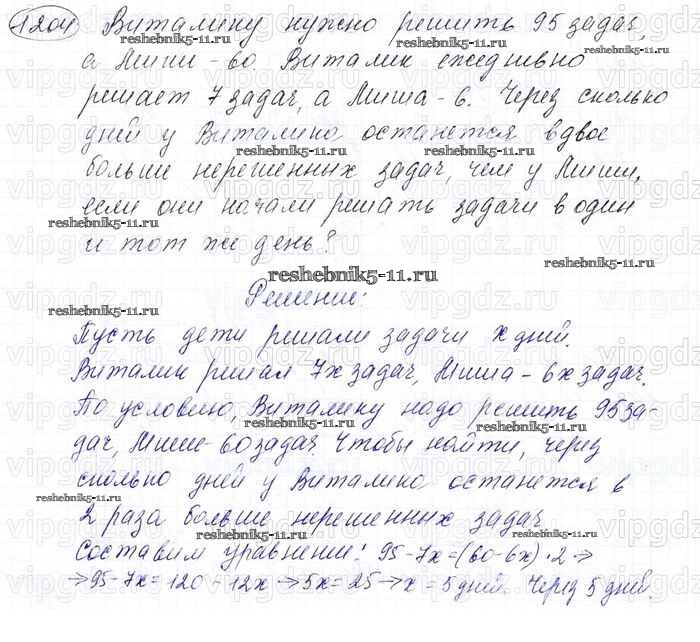 1204 Виталику нужно решить 95 задач,
а Миши - 60 Виталик ежедневно
решает 7 задач, а Миша - 6. Через сколько
дней у Виталика останется вдвое
больше нерешенных задач, чем у Миши,
если они начали решать задачи в один
и тот же день?
Решение:
Пусть дети решали задачи x дней.
Виталик решал 7x задач, Миша - 6x задач.
По условию, Виталику надо решить 95 за-
дач, Миши - 60 задач. Чтобы найти, через
сколько дней у Виталика останется в
2 раза больше нерешенных задач
составим уравнение: 95 - 7x = (60 - 6x) · 2 →
→ 95 - 7x = 120 - 12x → 5x = 25 → x = 5 дней. Через 5 дней.
reshebnik5-11.ru
vipgdz.ru